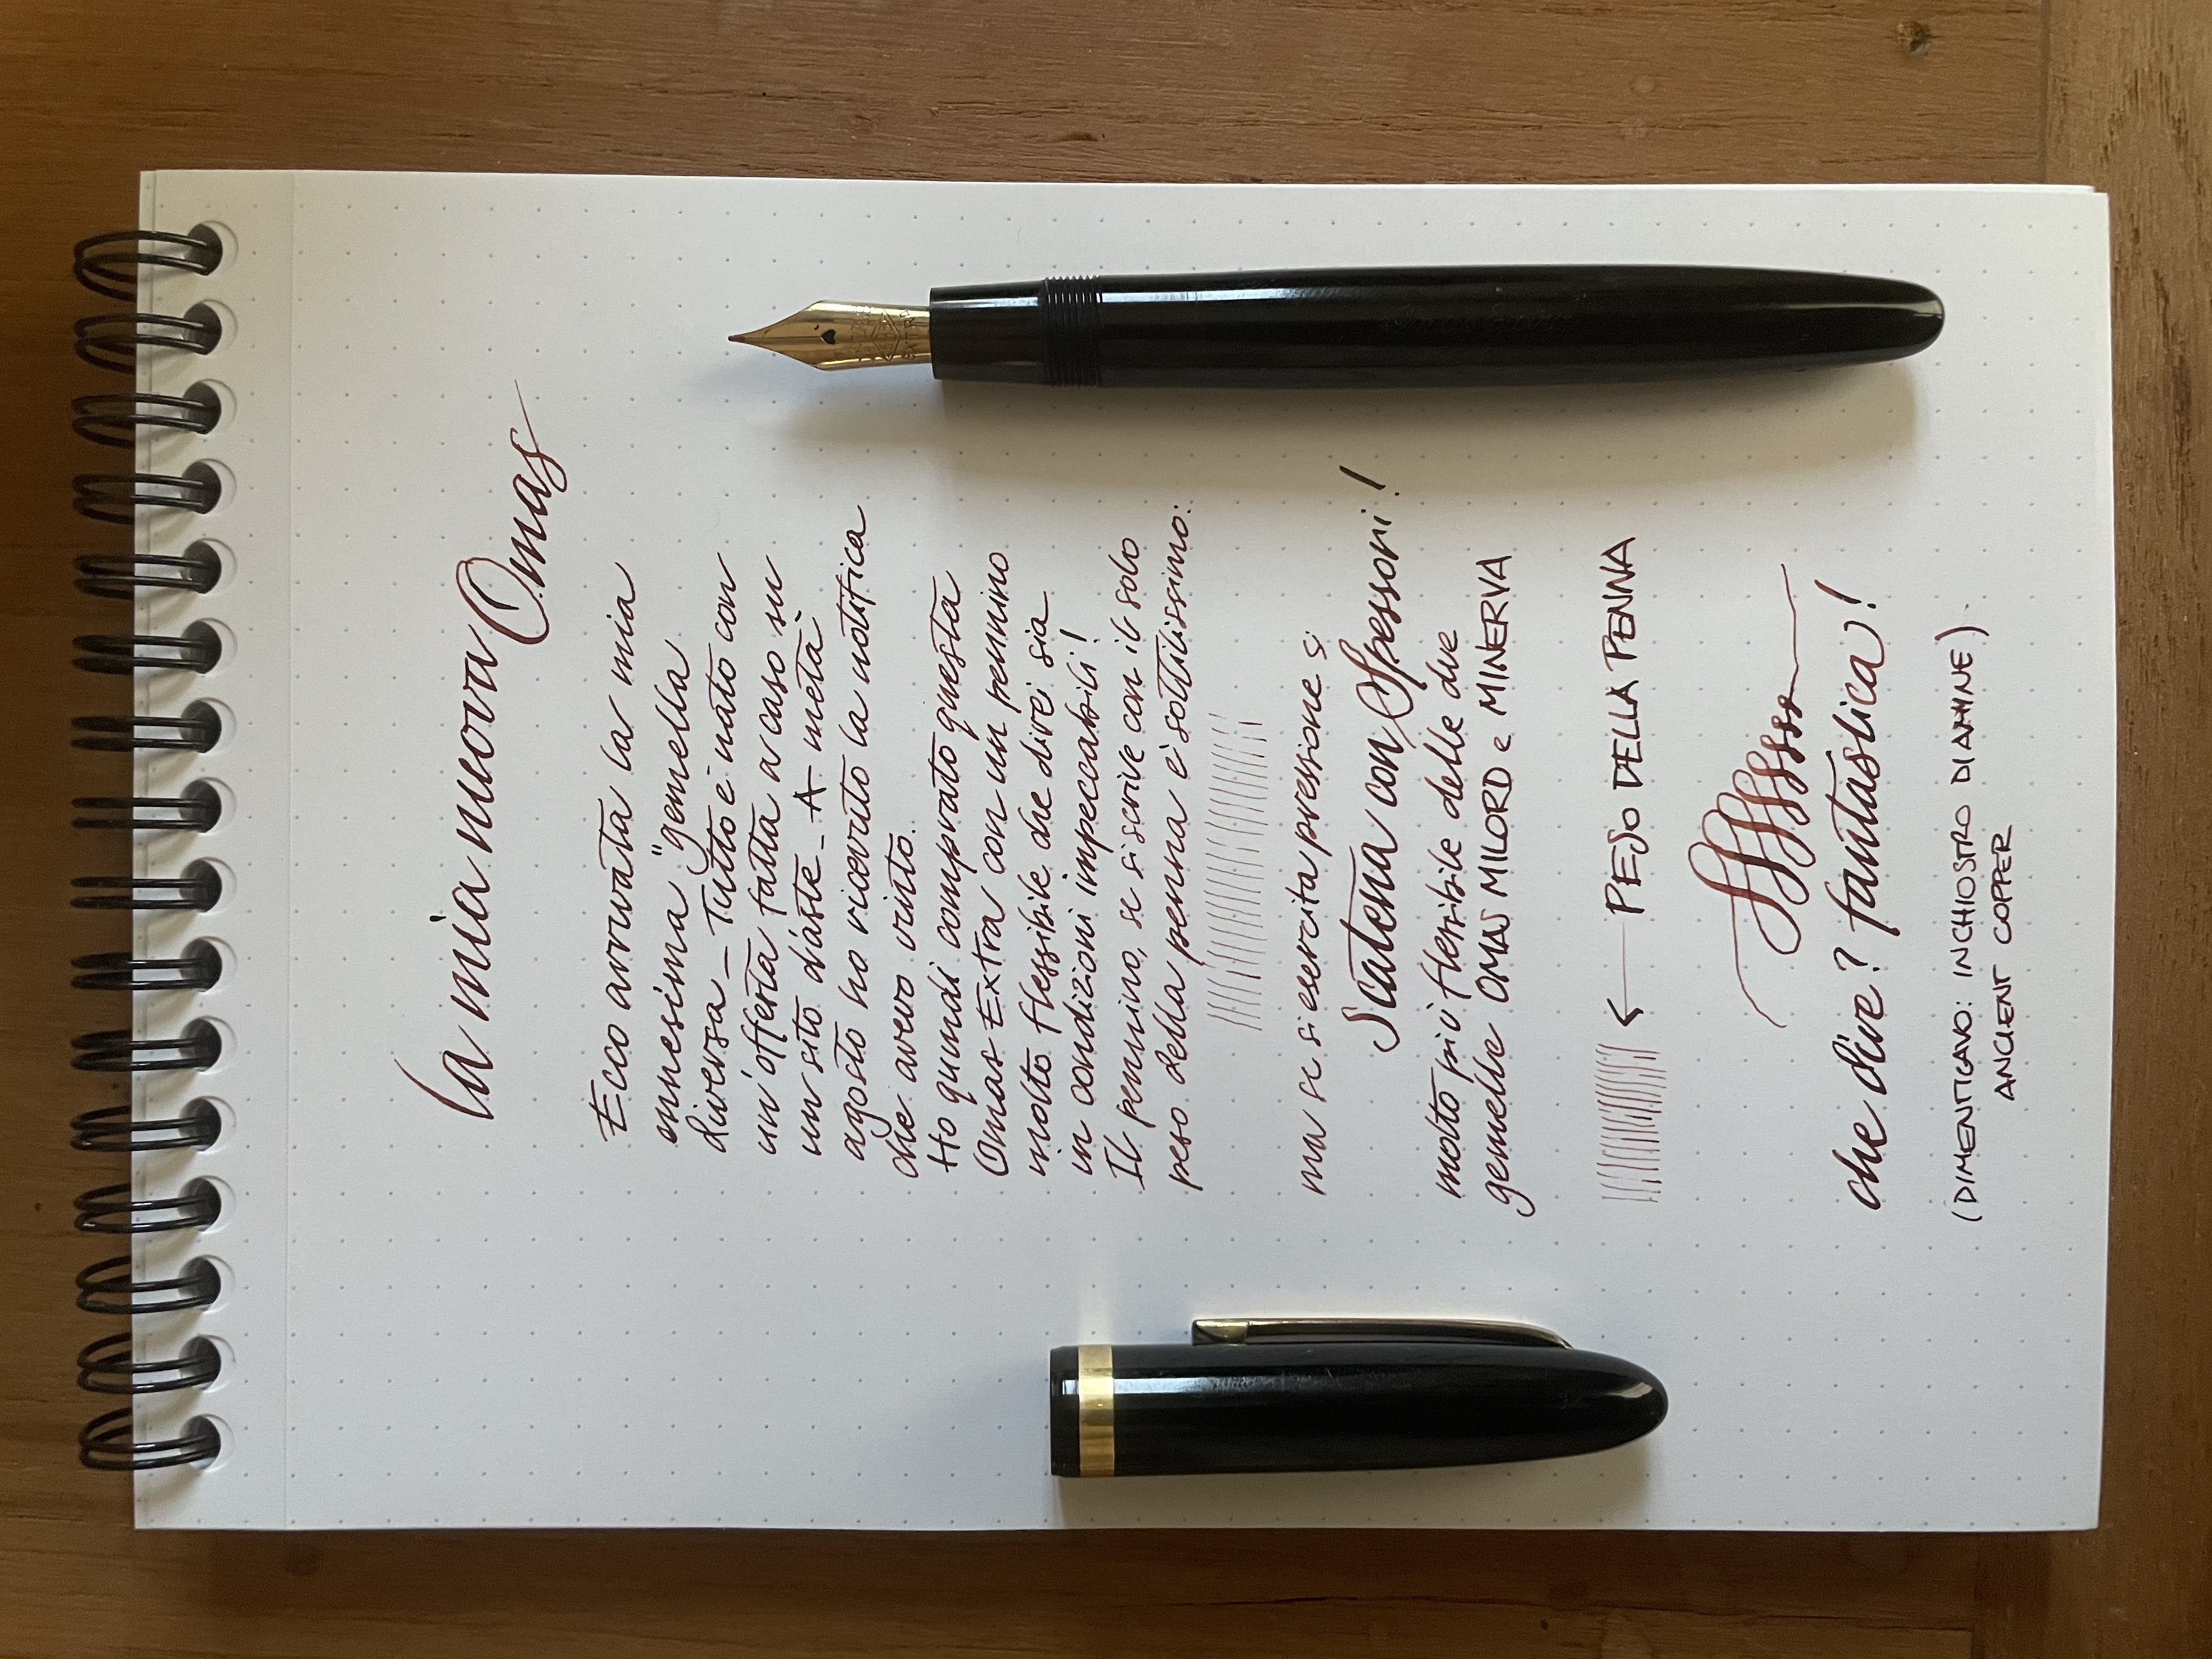 La mia nuova Omas
Ecco arrivata la mia
ennesima "gemella
diversa_ Tutto è nato con
un'offerta fatta a caso su
un sito d'aste_ A metà
agosto ho ricevuto la notifica
che avevo vinto.
Ho quindi comprato questa
Omas Extra con un pennino
molto flessibile che direi sia
in condizioni impeccabili!
Il pennino, se si scrive con il solo
peso della penna è sottilissimo:
ma se si esercita pressione si
Scatena con Spessori!
molto più flessibile delle due
gemelle OMAS MILORD e MINERVA
PESO DELLA PENNA
che dire? fantastica!
(DIMENTICAVO: INCHIOSTRO DIAMINE)
ANCIENT COPPER